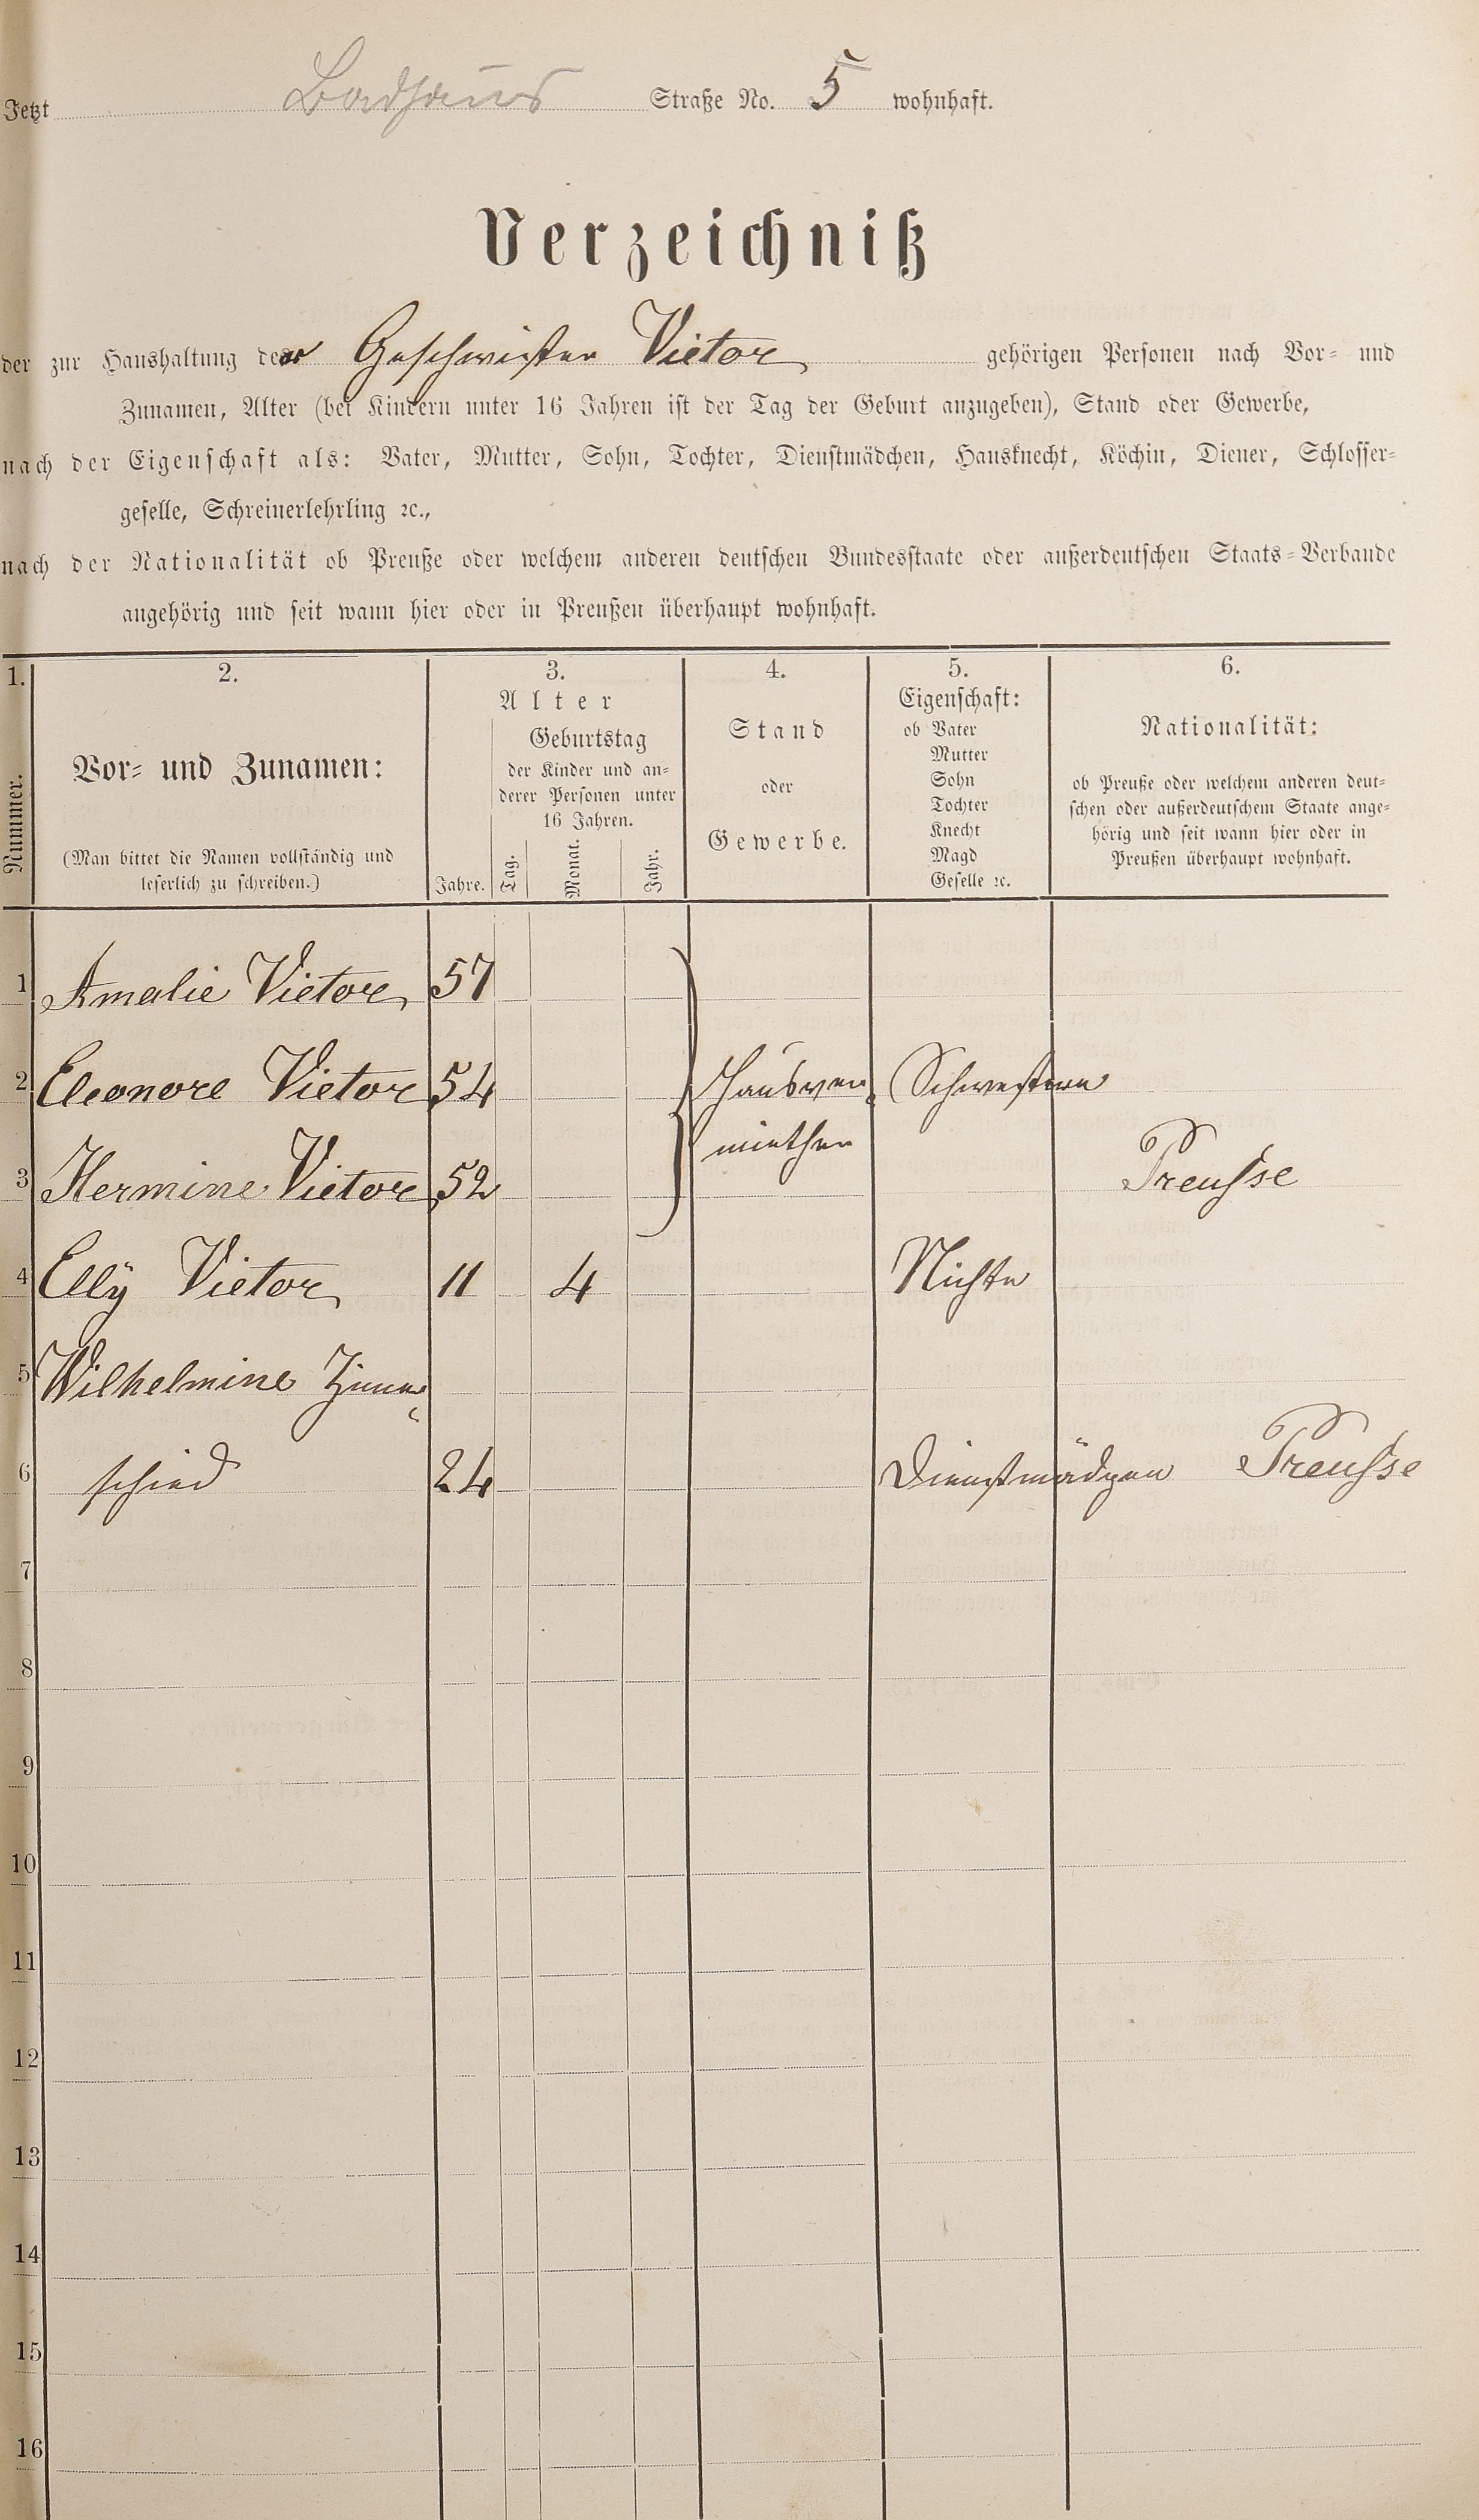 Jetzt Badhaus Straße No. 5 wohnhaft.
Verzeichniß
der zur Haushaltung der Geschwister Vietor gehörigen Personen nach Vor- und
Zunamen, Alter (bei Kindern unter 16 Jahren ist der Tag der Geburt anzugeben), Stand oder Gewerbe,
nach der Eigenschaft als: Vater, Mutter, Sohn, Tochter, Dienstmädchen, Hausknecht, Köchin, Diener, Schlosser-
geselle, Schreinerlehrling ꝛc.,
nach der Nationalität ob Preuße oder welchem anderen deutschen Bundesstaate oder außerdeutschen Staats-Verbande
angehörig und seit wann hier oder in Preußen überhaupt wohnhaft.
1. 2. 3. 4. 5. 6.
Nummer.
Vor- und Zunamen:
(Man bittet die Namen vollständig und
leserlich zu schreiben.)
Alter
Geburtstag
der Kinder und an-
derer Personen unter
16 Jahren.
Jahre. Tag. Monat. Jahr.
Stand
oder
Gewerbe.
Eigenschaft:
ob Vater
Mutter
Sohn
Tochter
Knecht
Magd
Geselle ꝛc.
Nationalität:
ob Preuße oder welchem anderen deut-
schen oder außerdeutschem Staate ange-
hörig und seit wann hier oder in
Preußen überhaupt wohnhaft.
1 Amalie Vietor 57
2 Eleonore Vietor 54 Hausver- Schwestern
miether
3 Hermine Vietor 52 Preusse
4 Elly Vietor 11 4 Nichte
5 Wilhelmine Zimmer-
6 schied 24 Dienstmädgen Preusse
7
8
9
10
11
12
13
14
15
16